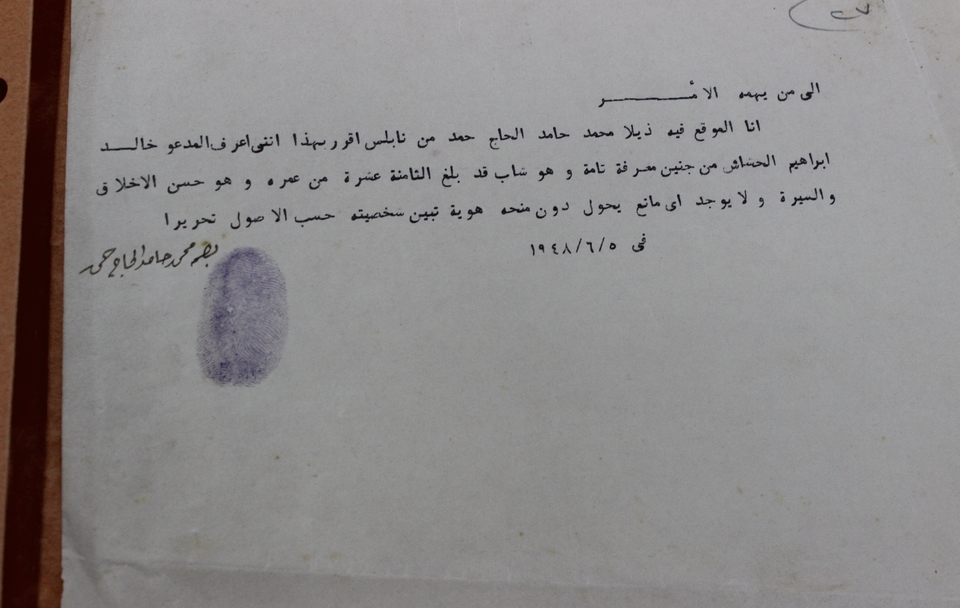 الى من يهمه الامـــــــر
انا الموقع فيه ذيلا محمد حامد الحاج حمد من نابلس اقرر بهذا انني اعرف المدعو خالــــد
ابراهيم الحشاش من جنين معرفة تامة و هو شاب قد بلغ الثامنة عشرة من عمره و هو حسن الاخلاق
و السيرة و لا يوجد اى مانع يحول دون منحه هوية تبين شخصيته حسب الاصول تحريرا
في ١٩٤٨/٦/٥
بصمة محمد حامد الحاج حمد